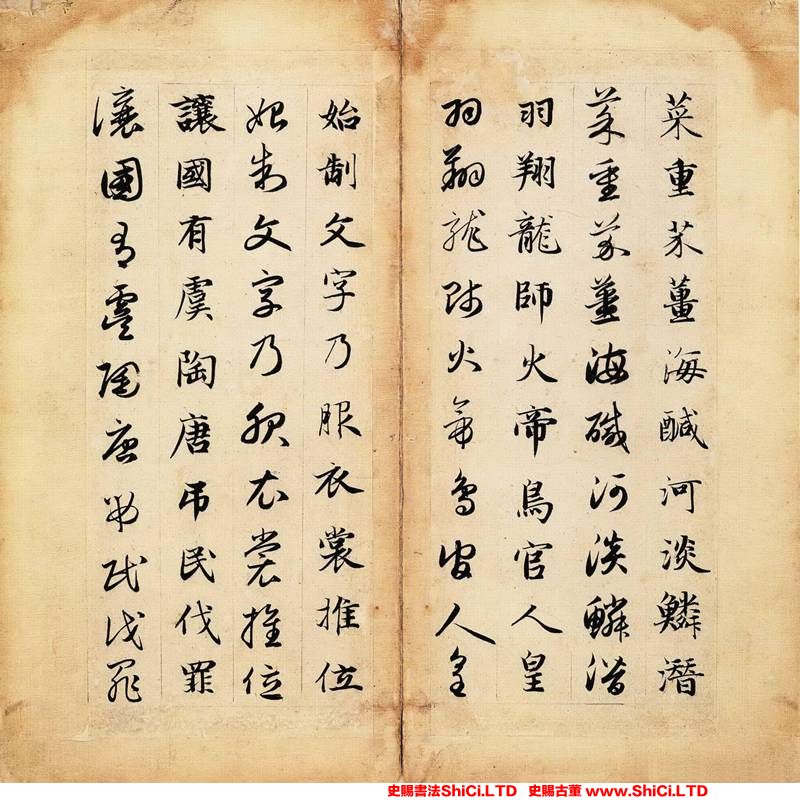 菜重芥薑海醎河淡鱗潛
菜重芥薑海醎河淡鱗潛
羽翔龍師火帝鳥官人皇
羽翔龍師火帝鳥官人皇
始制文字乃服衣裳推位
始制文字乃服衣裳推位
讓國有虞陶唐吊民伐罪
讓國有虞陶唐吊民伐罪
史賜書法ShiCi.LTD 史賜古董 www.ShiCi.LTD